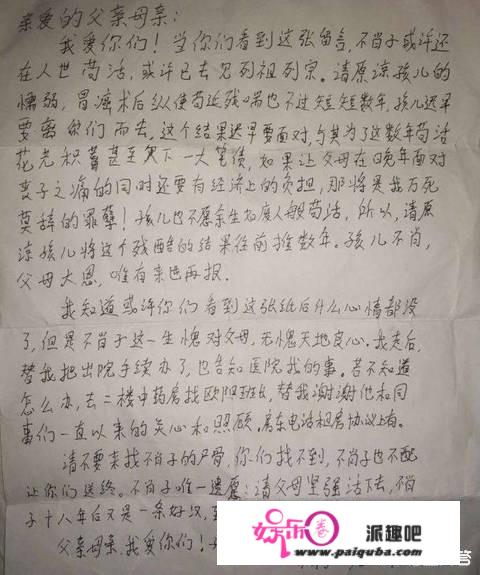 亲爱的父亲母亲:
我爱你们!当你们看到这张留言,不肖子或许还
在人世苟活,或许已去见列祖列宗。请原凉孩儿的
懦弱,胃癌术后纵使苟延残喘也不过短短数年,孩儿迟早
要离你们而去,这个结果迟早要面对,与其为了这数年苟活
花光积蓄甚至欠下一大笔债,如果让父母在晚年面对
丧子之痛的同时还要有经济上的负担,那将是我万死
莫辞的罪孽!孩儿也不愿余生如废人般苟活,所以,请原
凉孩儿将这个残酷的结果往前推数年。孩儿不肖,
父母大恩,唯有来世再报.
我知道或许你们看到这张纸后什么心情都没
了,但是不肖子这一生愧对父母,无愧天地良心.我走后,
替我把出院手续办了,也告知医院我的事。若不知道
怎么办,去二楼中药房找欧阳班长,替我谢谢他和同
事们一直以来的关心和照顾.房东电话租房协议上有。
请不要来找不肖子的尸骨,你们找不到,不肖子也不配
让你们送终。不肖子唯一遗愿:请父母坚强活下去,不肖
子十八年后又是一条好汉,
父亲母亲,我爱你们!
娱乐卷 派趣吧
www.paiquba.com